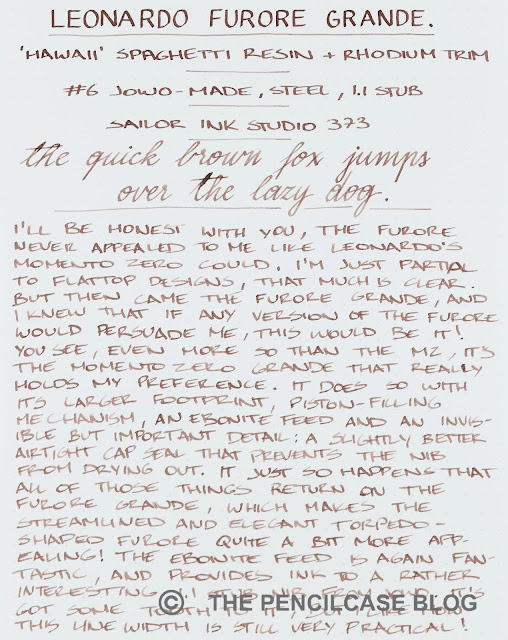 LEONARDO FURORE GRANDE.
'HAWAII' SPAGHETTI RESIN + RHODIUM TRIM
#6 JOWO-MADE, STEEL, 1.1 STUB
SAILOR INK STUDIO 373
the quick brown fox jumps
over the lazy dog.
I'LL BE HONEST WITH YOU, THE FURORE
NEVER APPEALED TO ME LIKE LEONARDO'S
MOMENTO ZERO COULD. I'M JUST PARTIAL
TO FLATTOP DESIGNS, THAT MUCH IS CLEAR.
BUT THEN CAME THE FURORE GRANDE, AND
I KNEW THAT IF ANY VERSION OF THE FURORE
WOULD PERSUADE ME, THIS WOULD BE IT!
YOU SEE, EVEN MORE SO THAN THE MZ, IT'S
THE MOMENTO ZERO GRANDE THAT REALLY
HOLDS MY PREFERENCE. IT DOES SO WITH
ITS LARGER FOOTPRINT, PISTON-FILLING
MECHANISM, AN EBONITE FEED AND AN INVIS-
IBLE BUT IMPORTANT DETAIL: A SLIGHTLY BETTER
AIRTIGHT CAP SEAL THAT PREVENTS THE NIB
FROM DRYING OUT. IT JUST SO HAPPENS THAT
ALL OF THOSE THINGS RETURN ON THE
FURORE GRANDE, WHICH MAKES THE
STREAMLINED AND ELEGANT TORPEDO-
SHAPED FURORE QUITE A BIT MORE APP-
EALING! THE EBONITE FEED IS AGAIN FAN-
TASTIC, AND PROVIDES INK TO A RATHER
INTERESTING 1.1 STUB NIB FROM JOWO. IT'S
GOT SOME TO IT, BUT
© THE PENCILCASE BLOG
THIS LINE WIDTH IS STILL VERY PRACTICAL!